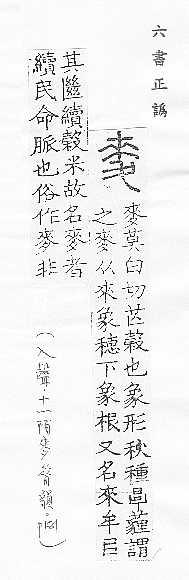 六書正譌
麥莫白切芒穀也象形秋種薶謂
之麥从來象穗下象根又名來牟㠯
其繼續穀米故名麥者
續民命脈也俗作麥非
(入聲·十一陌麥昔韻。